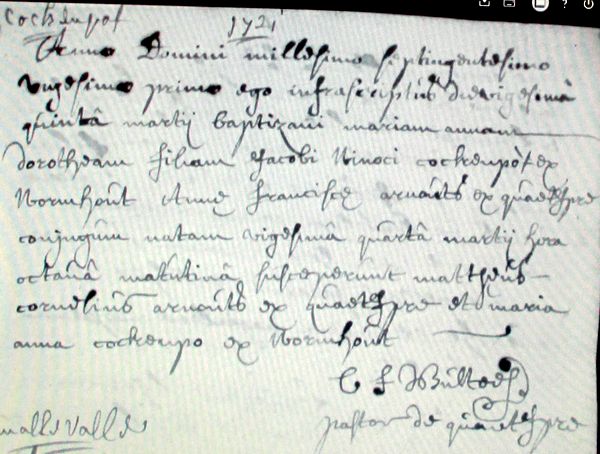 Cockenpot
1721
Anno Domini millesimo septingentesimo
vigesimo primo ego infrascriptus die vigesimâ
quintâ martij baptizavi mariam annam
dorotheam filiam Jacobi Ninoci cockenpot ex
Wormhoût Annę Franciscę arnoûts ex quaetÿpre
conjugum natam vigesimâ quartâ martij hora
octavâ matutinâ susceperunt mattheûs
cornelius arnoûts ex quaetÿpre et maria
anna cockenpo ex Wormhoût
C f Bûltoes
pastor de quaetÿpre